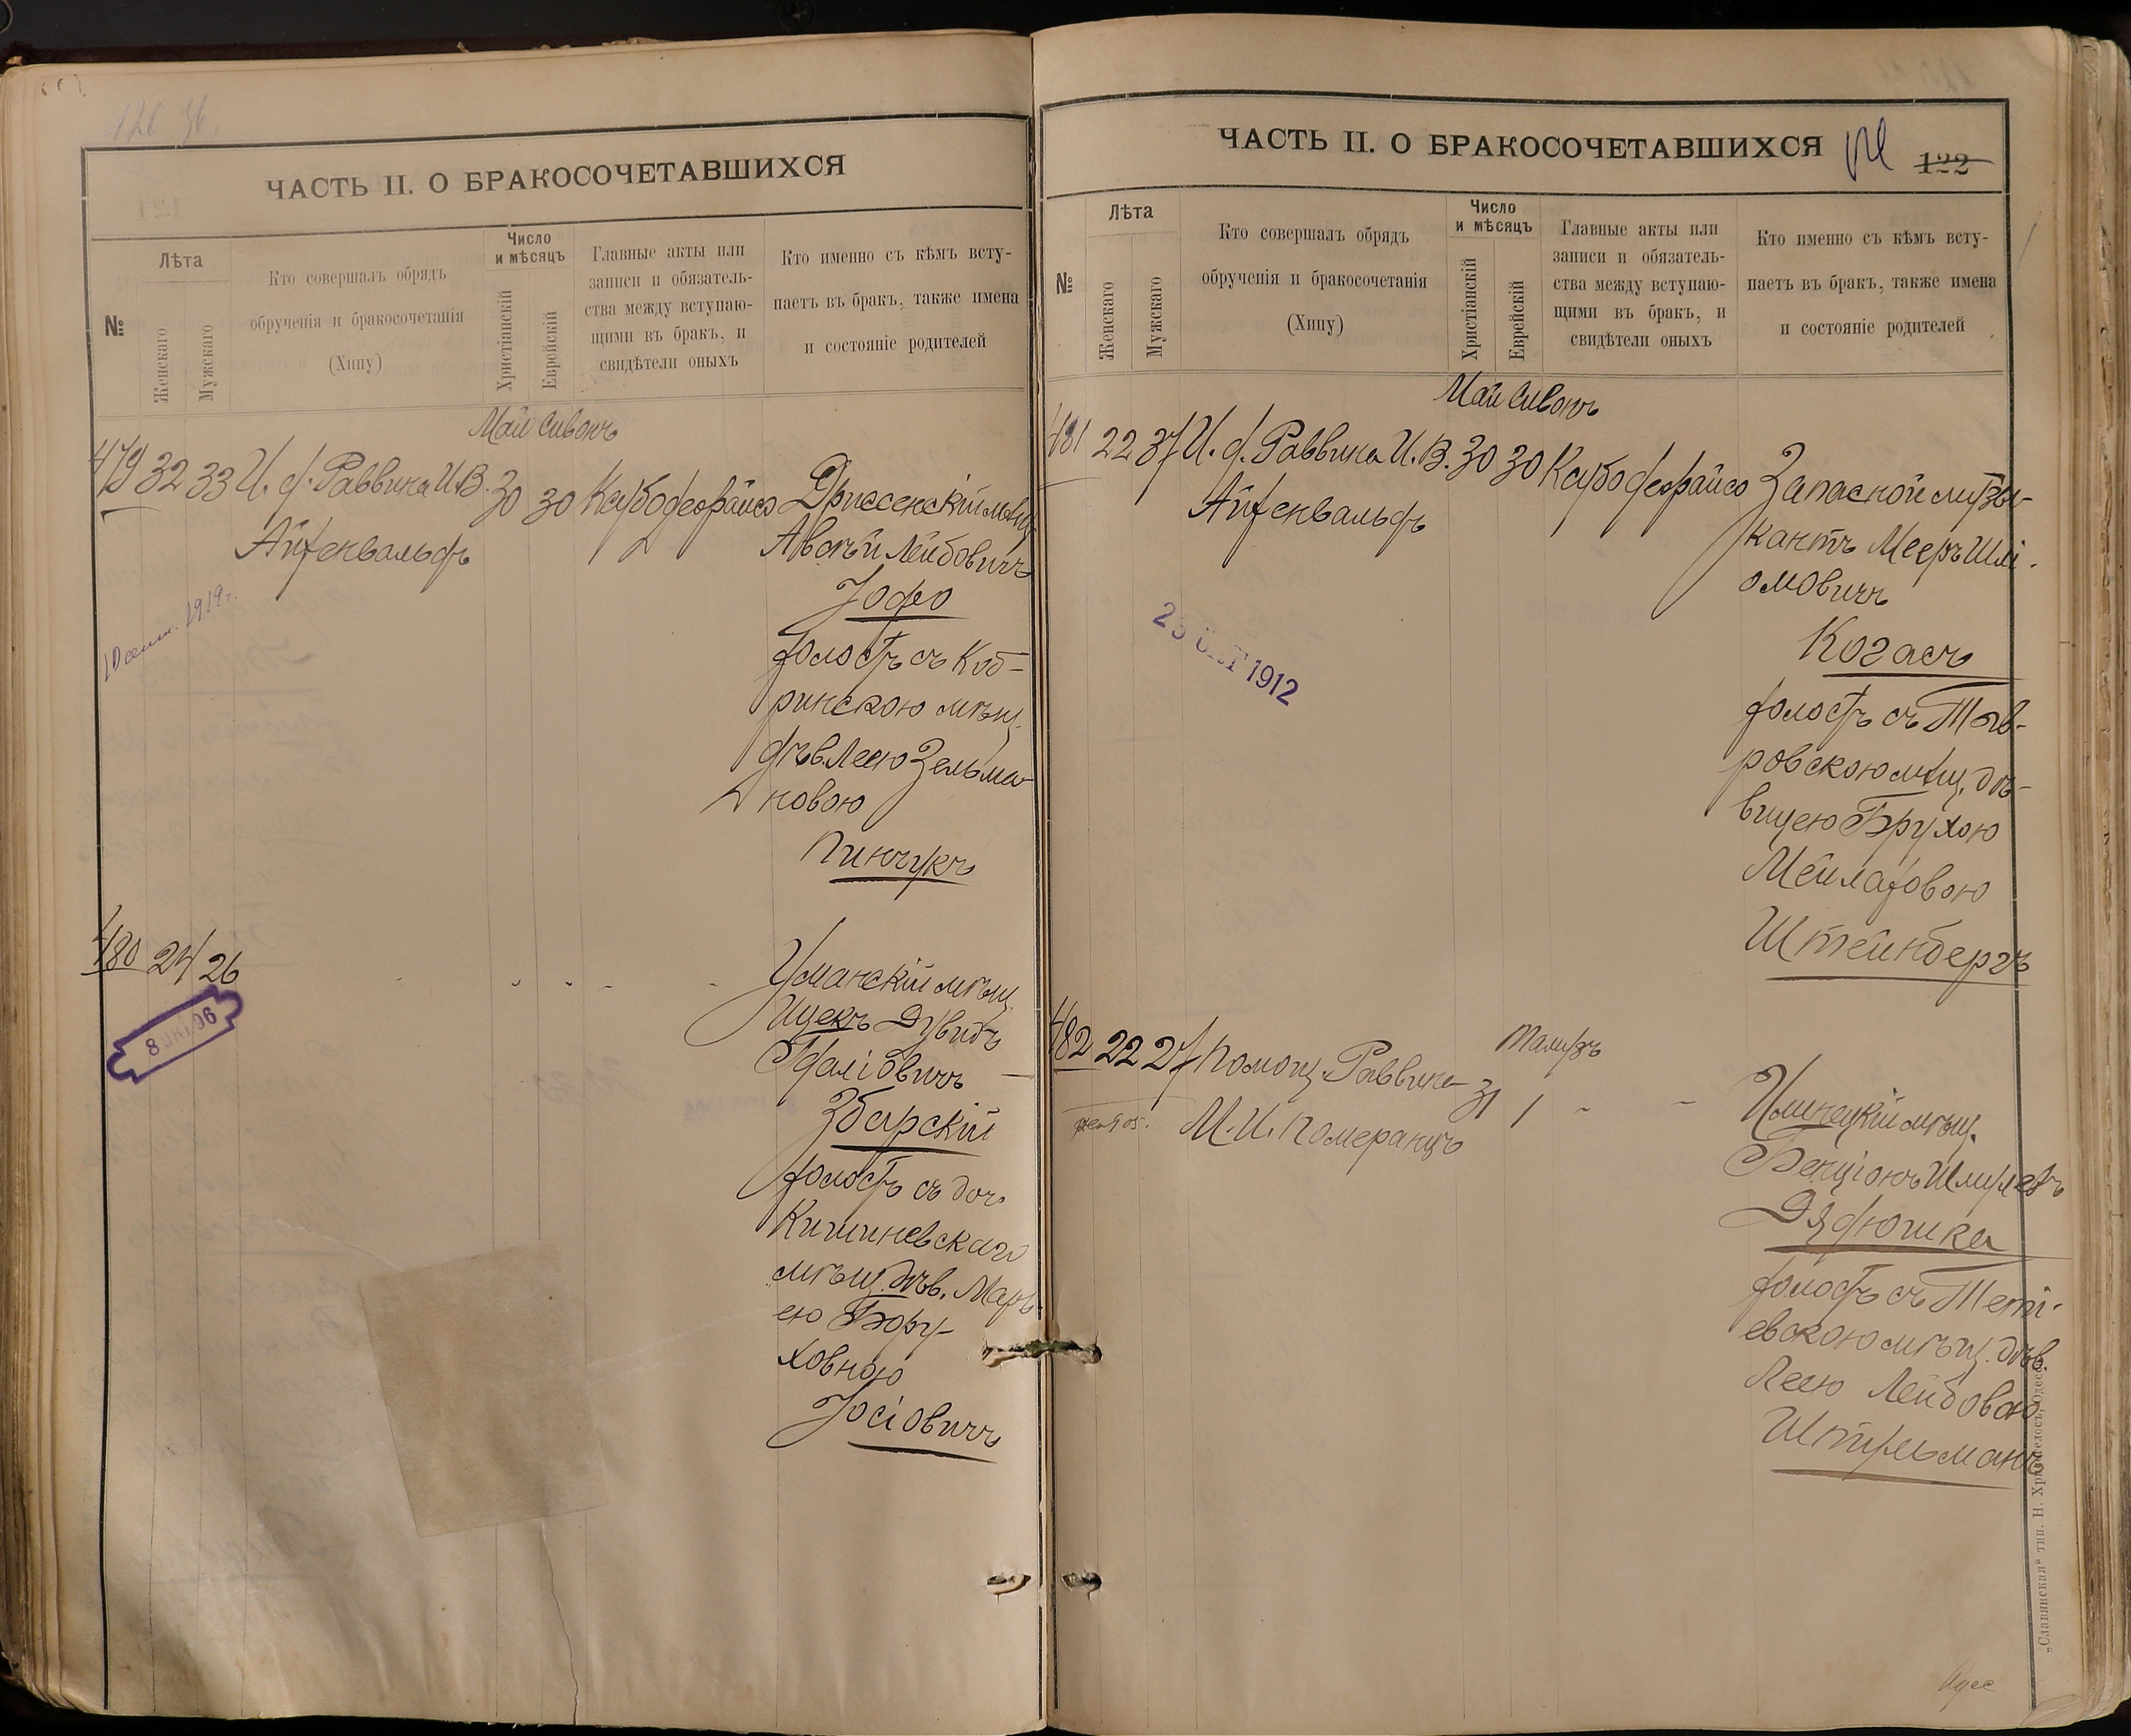 ЧАСТЬ II. О БРАКОСОЧЕТАВШИХСЯ
№
Лѣта
Женскаго
Мужскаго
Кто совершалъ обрядъ
обрученія и бракосочетанія
(Хипу)
Число
и мѣсяцъ
Христіанскій
Еврейскій
Главные акты или
записи и обязатель-
ства между вступаю-
щими въ бракъ, и
свидѣтели оныхъ
Кто именно съ кѣмъ всту-
паетъ въ бракъ, также имена
и состояніе родителей
Май Сивонъ
479 32 33 И. д. Раввина И.В. 30 30
Айзенвальдъ
Дриссенскій мѣщ.
Лейбовичъ
Іоффе
холостъ съ Коб-
ринскою мѣщ.
дѣв. Леею Зельма-
новою
Пинчукъ
480 24 26
Уманскій мѣщ.
Ицекъ Дувидъ
Збарскій
холостъ съ доч.
Кишиневскаго
мѣщ. дѣв. Марь-
ею Бору-
ховною
Іосіовичъ
ЧАСТЬ II. О БРАКОСОЧЕТАВШИХСЯ
122
№
Лѣта
Женскаго
Мужскаго
Кто совершалъ обрядъ
обрученія и бракосочетанія
(Хипу)
Число
и мѣсяцъ
Христіанскій
Еврейскій
Главные акты или
записи и обязатель-
ства между вступаю-
щими въ бракъ, и
свидѣтели оныхъ
Кто именно съ кѣмъ всту-
паетъ въ бракъ, также имена
и состояніе родителей
Май Сивонъ
481 22 37 И. д. Раввина И.В. 30 30
Айзенвальдъ
Запасной музы-
кантъ Мееръ Шлі-
омовичъ
Коганъ
холостъ съ
ровскою мѣщ. дѣ-
вицею Брухою
Мейлаховою
Штейнбергъ
1912
482 22 27 Помощ. Раввина 31 1
Тамузъ
М. И. Померанцъ
мѣщ.
Бенціонъ
Дядюшка
холостъ съ Теті-
евскою мѣщ. дѣв.
Леею Лейбовою
Штульманъ
„Славянская“ тип. Н. Хрисогелосъ, Одесса